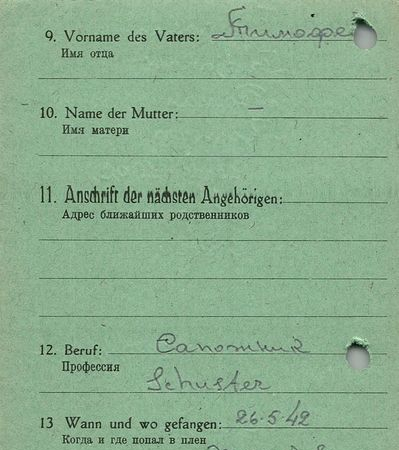 9. Vorname des Vaters: Тимофей
Имя отца
10. Name der Mutter: —
Имя матери
11. Anschrift der nächsten Angehörigen:
Адрес ближайших родственников
12. Beruf: Сапожник
Профессия
Schuster
13 Wann und wo gefangen: 26.5.42
Когда и где попал в плен